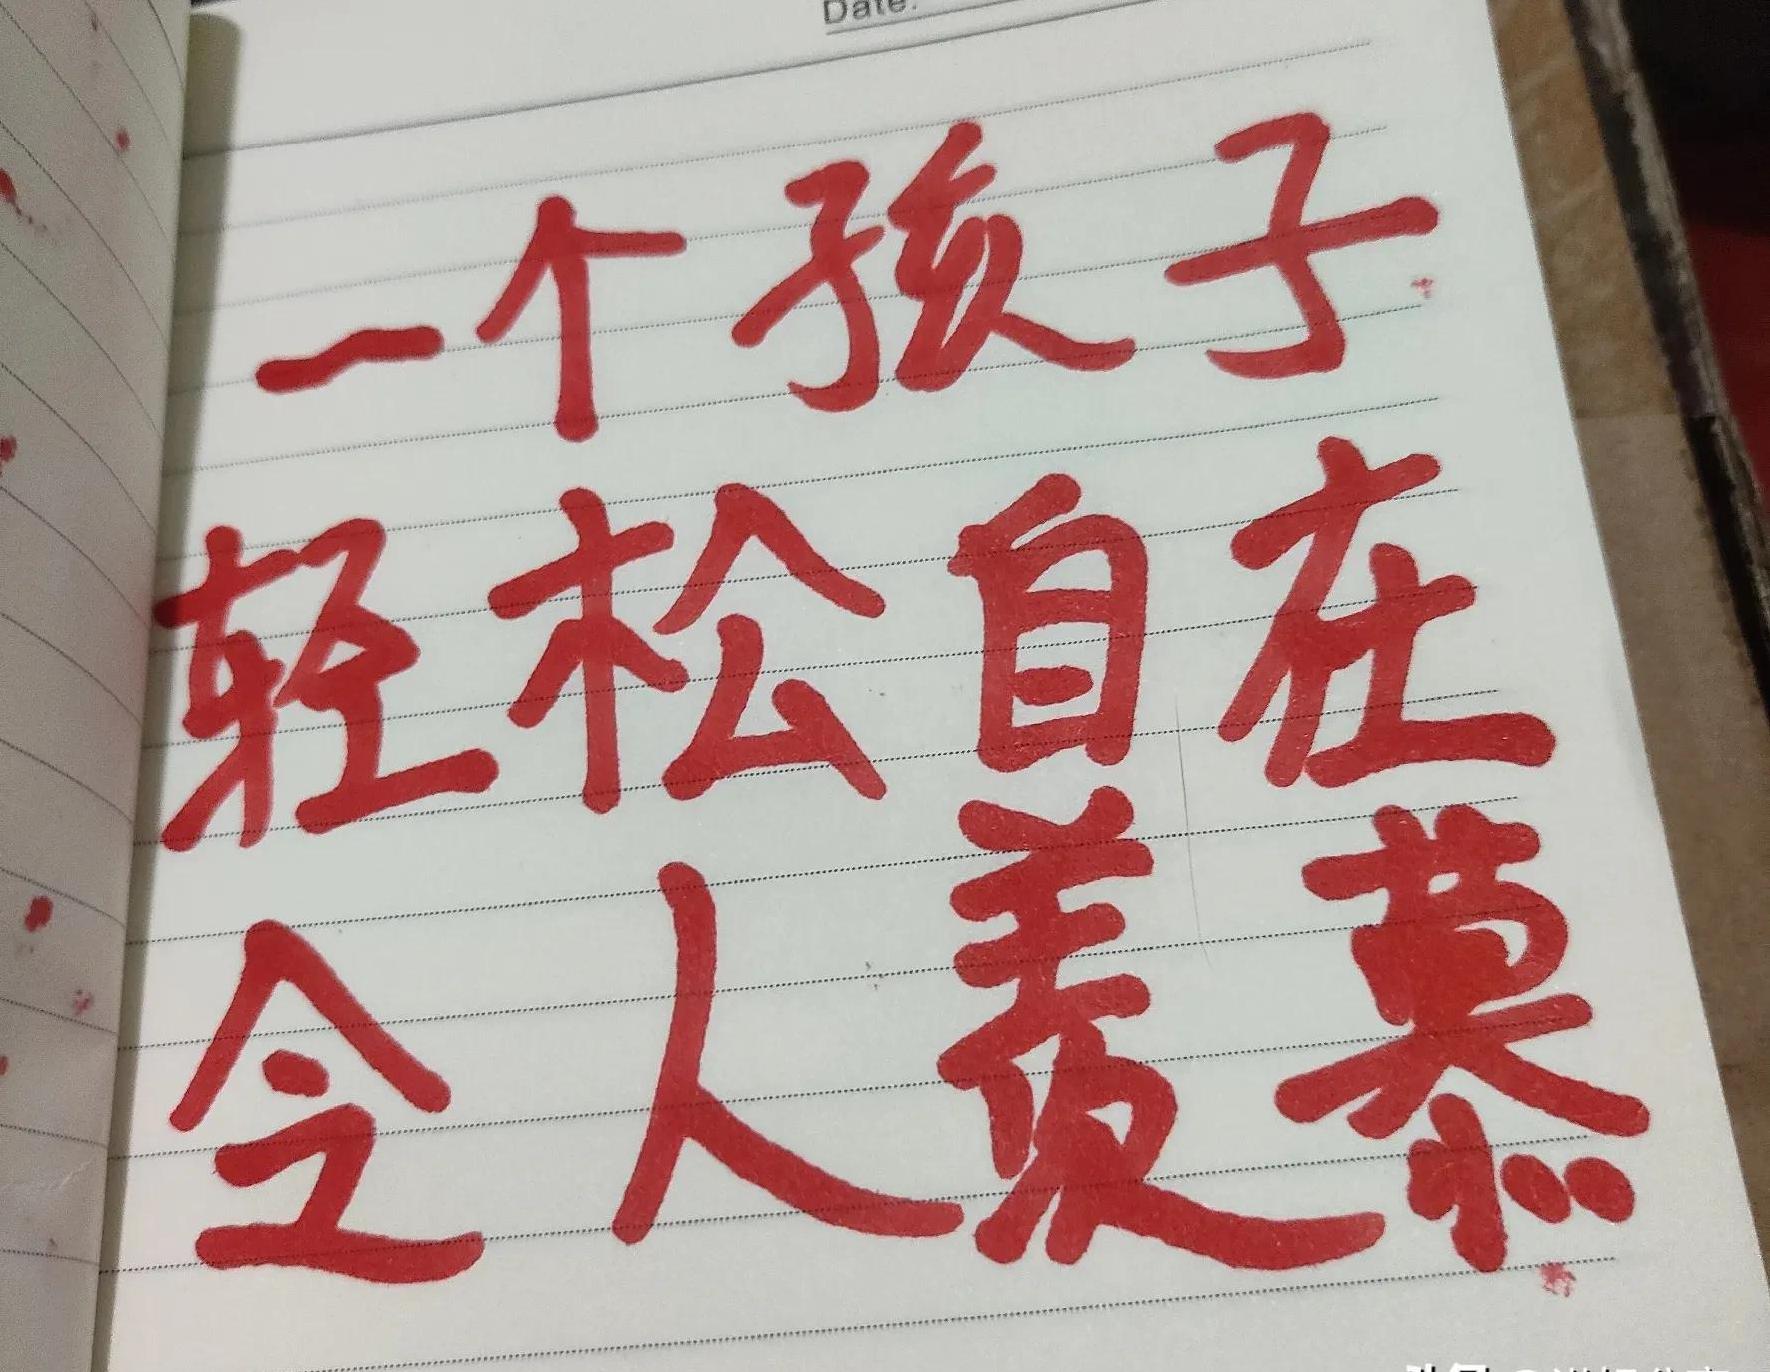 Date:
一个孩子
轻松自在
令人羡慕